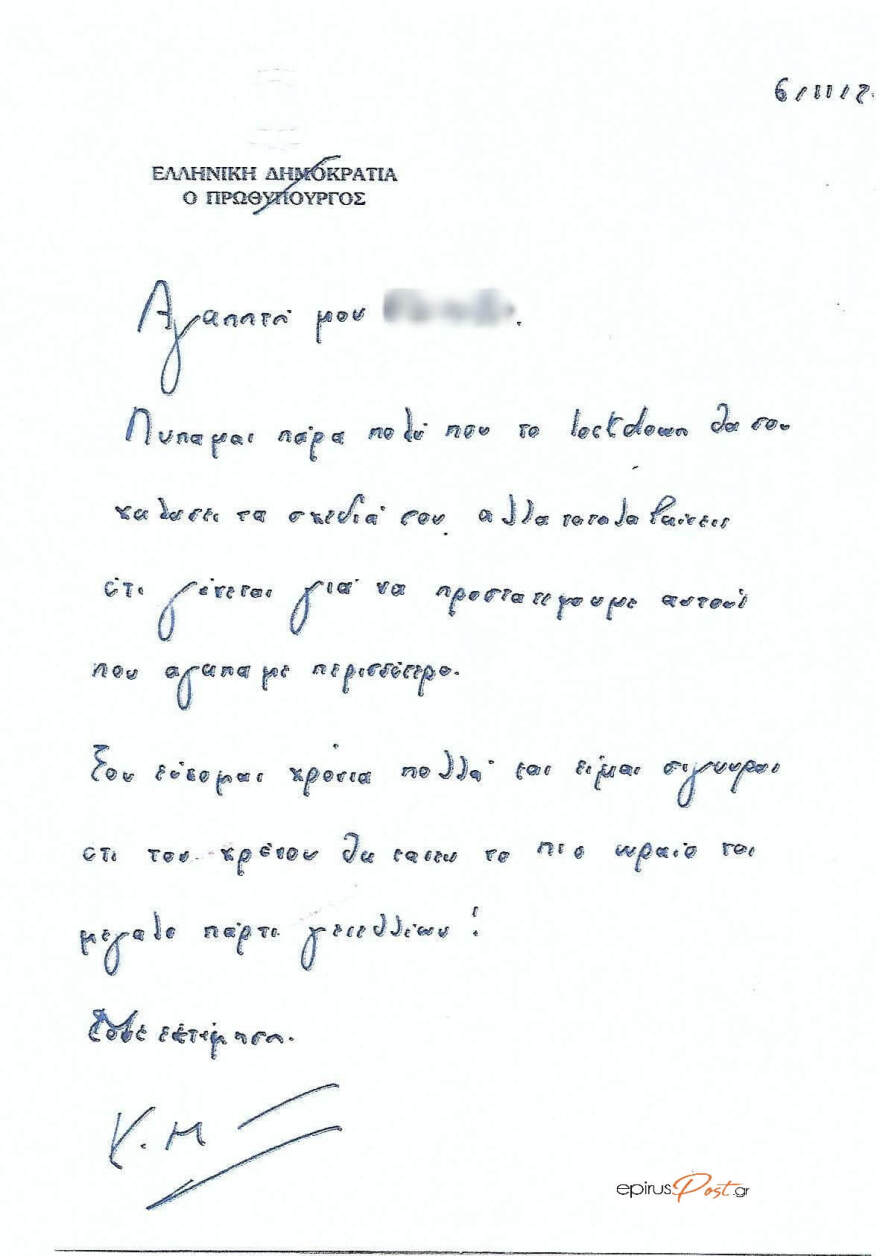 6/11/2
ΕΛΛΗΝΙΚΗ ΔΗΜΟΚΡΑΤΙΑ
Ο ΠΡΩΘΥΠΟΥΡΓΟΣ
Αγαπητή μου
Λυπαμαι πάρα πολύ που το lockdown θα σου
χαλασει τα σχεδιά σου αλλα καταλαβαίνεις
ότι γίνεται γιά να προστατεψουμε αυτούς
που αγαπαμε περισσότερο.
Σου εύχομαι χρόνια πολλά και είμαι σιγουρος
οτι του χρόνου θα κανεις το πιο ωραίο και
μεγαλο πάρτι γενεθλίων!
εκτίμηση.
Κ.Μ
epirusPost.gr